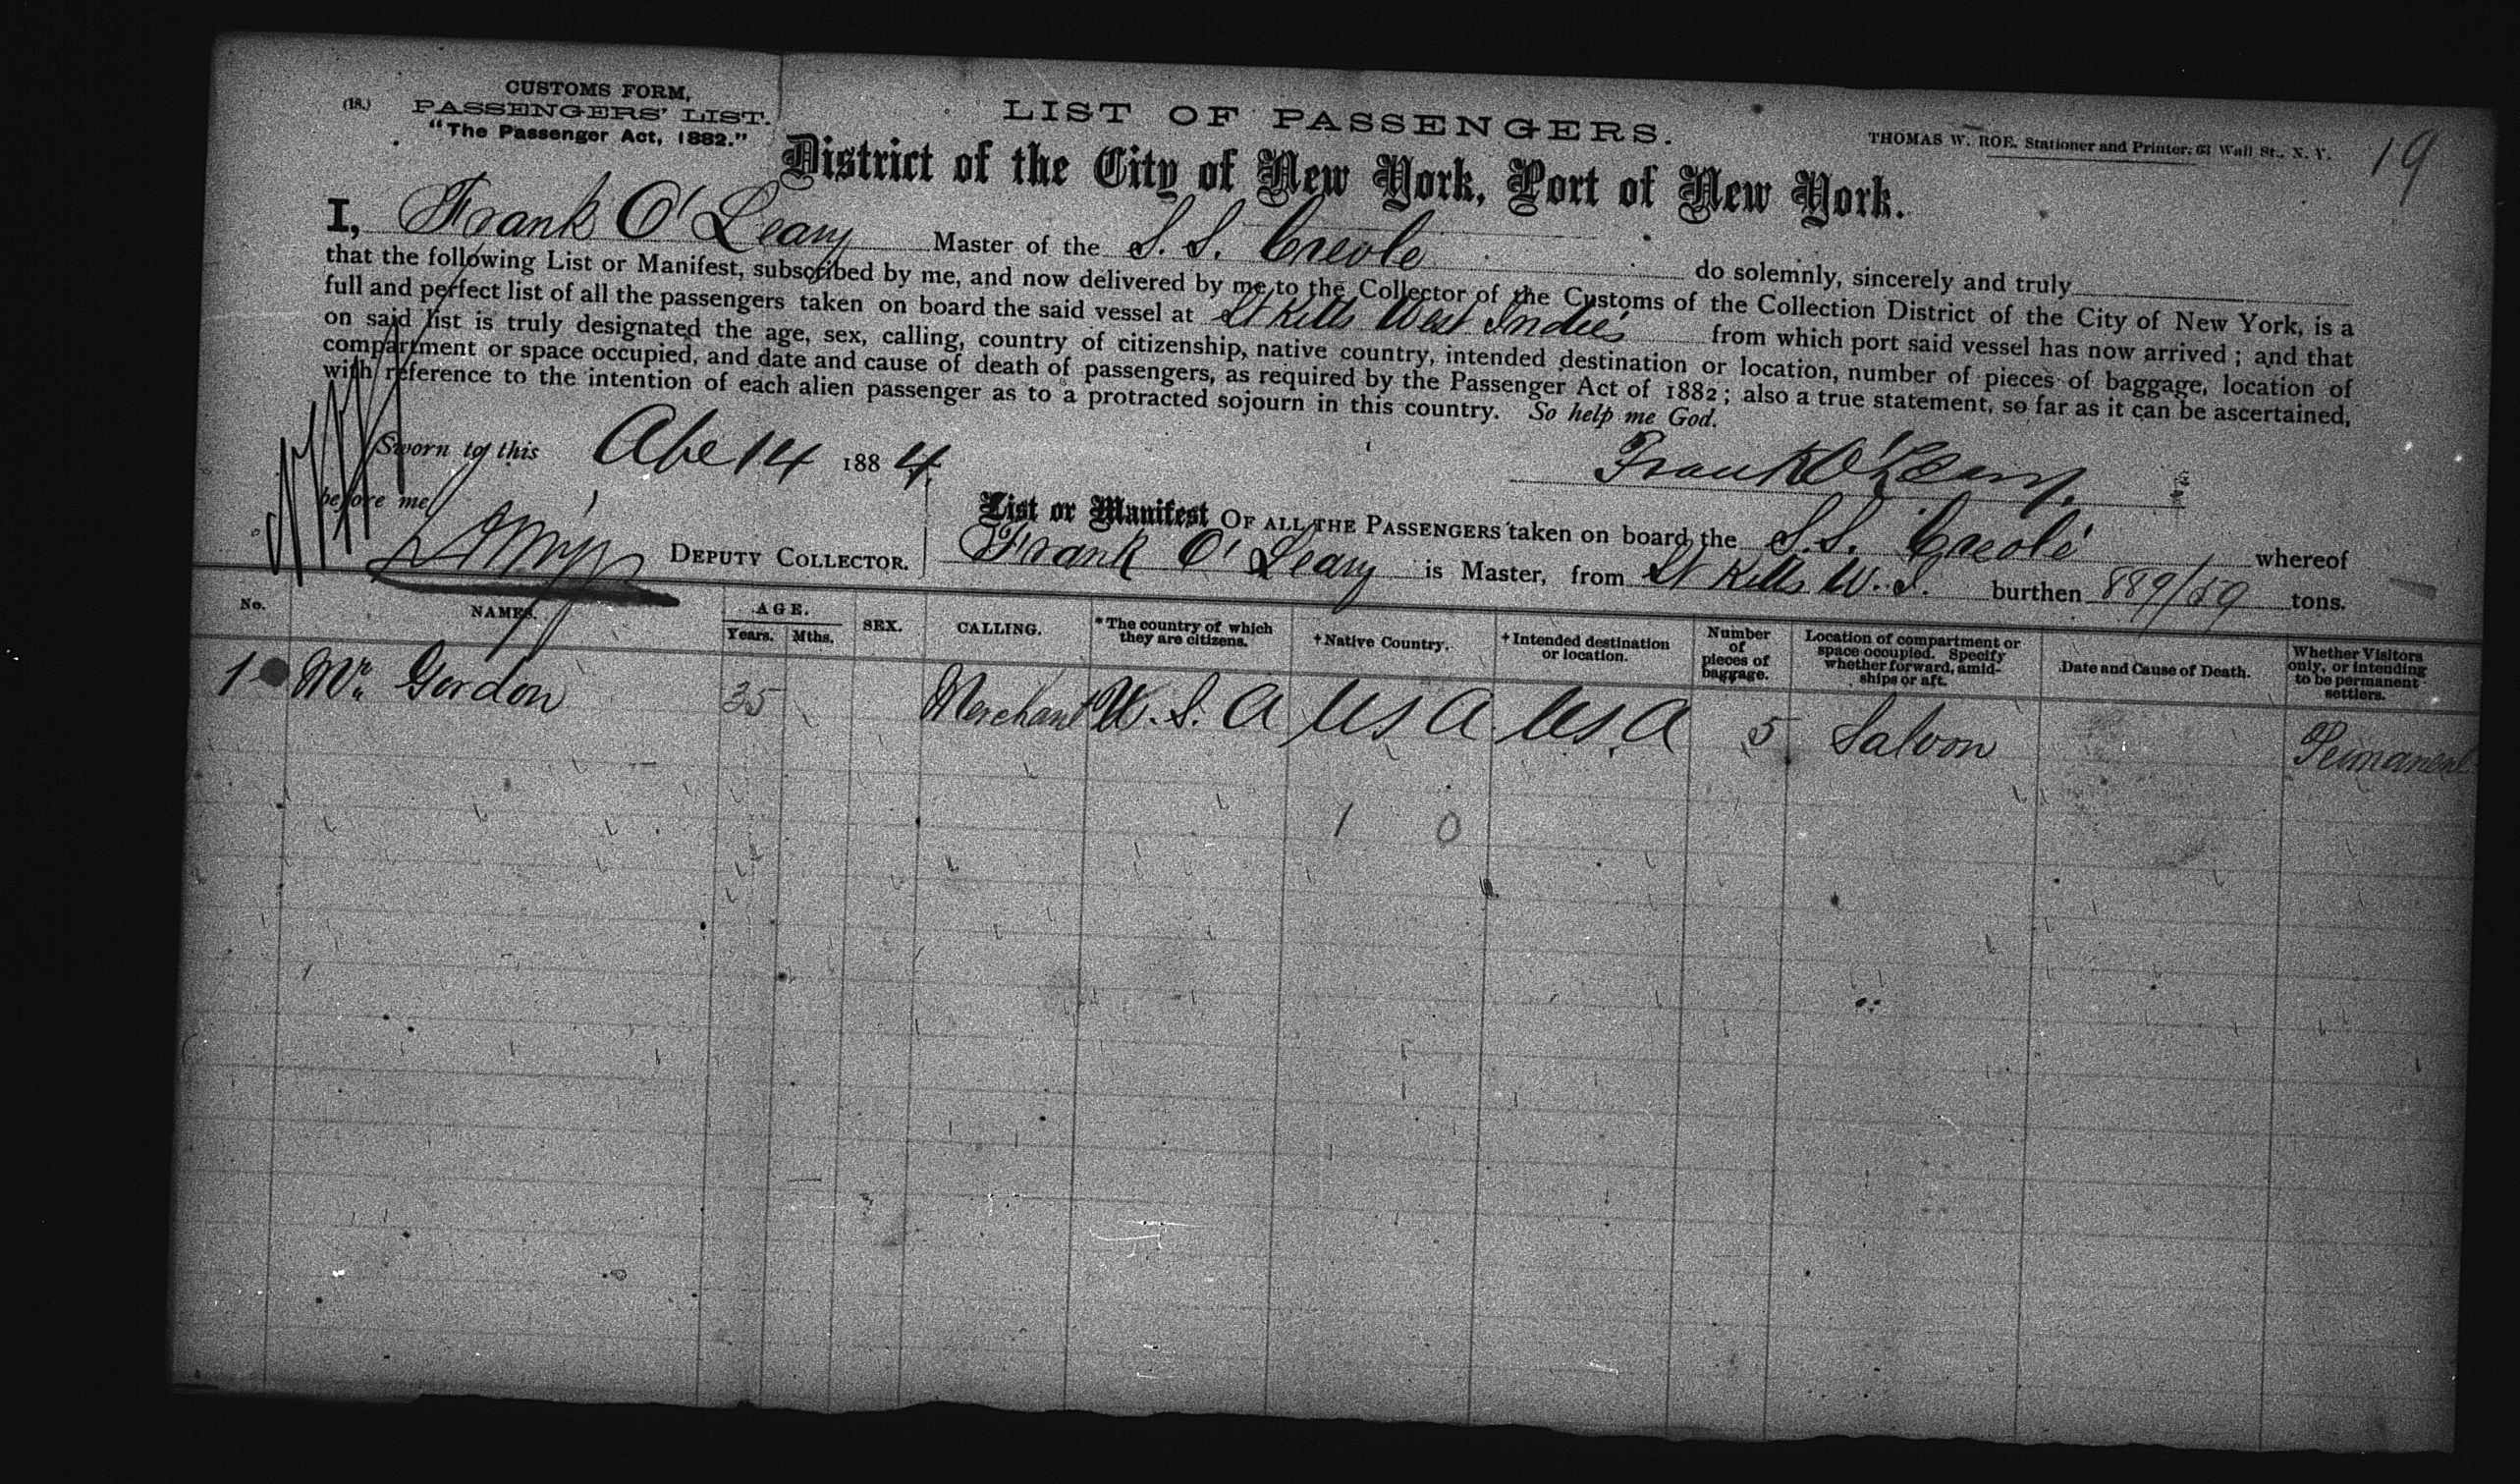 (18.)
CUSTOMS FORM,
PASSENGERS' LIST.
"The Passenger Act, 1882."
LIST OF PASSENGERS.
THOMAS W. ROE, Stationer and Printer, 63 Wall St., N. Y.
19
District of the City of New York, Port of New York.
I, Frank O'Leary Master of the S. S. Creole do solemnly, sincerely and truly
that the following List or Manifest, subscribed by me, and now delivered by me to the Collector of the Customs of the Collection District of the City of New York, is a
full and perfect list of all the passengers taken on board the said vessel at St Kitts West Indies from which port said vessel has now arrived; and that
on said list is truly designated the age, sex, calling, country of citizenship, native country, intended destination or location, number of pieces of baggage, location of
compartment or space occupied, and date and cause of death of passengers, as required by the Passenger Act of 1882; also a true statement, so far as it can be ascertained,
with reference to the intention of each alien passenger as to a protracted sojourn in this country. So help me God.
Sworn to this 14 1884
Frank O'Leary.
before me
DEPUTY COLLECTOR.
List or Manifest OF ALL THE PASSENGERS taken on board the S.S. Creole whereof
Frank O'Leary is Master, from St Kitts W. I. burthen 889/ tons.
No. NAMES. AGE. Years. Mths. SEX. CALLING. *The country of which they are citizens. †Native Country. †Intended destination or location. Number of pieces of baggage. Location of compartment or space occupied. Specify whether forward, amid-ships or aft. Date and Cause of Death. Whether Visitors only, or intending to be permanent settlers.
1 Mr. Gordon 35 Merchant U. S. A U S A U S. A 5 Saloon Permanent
1 0